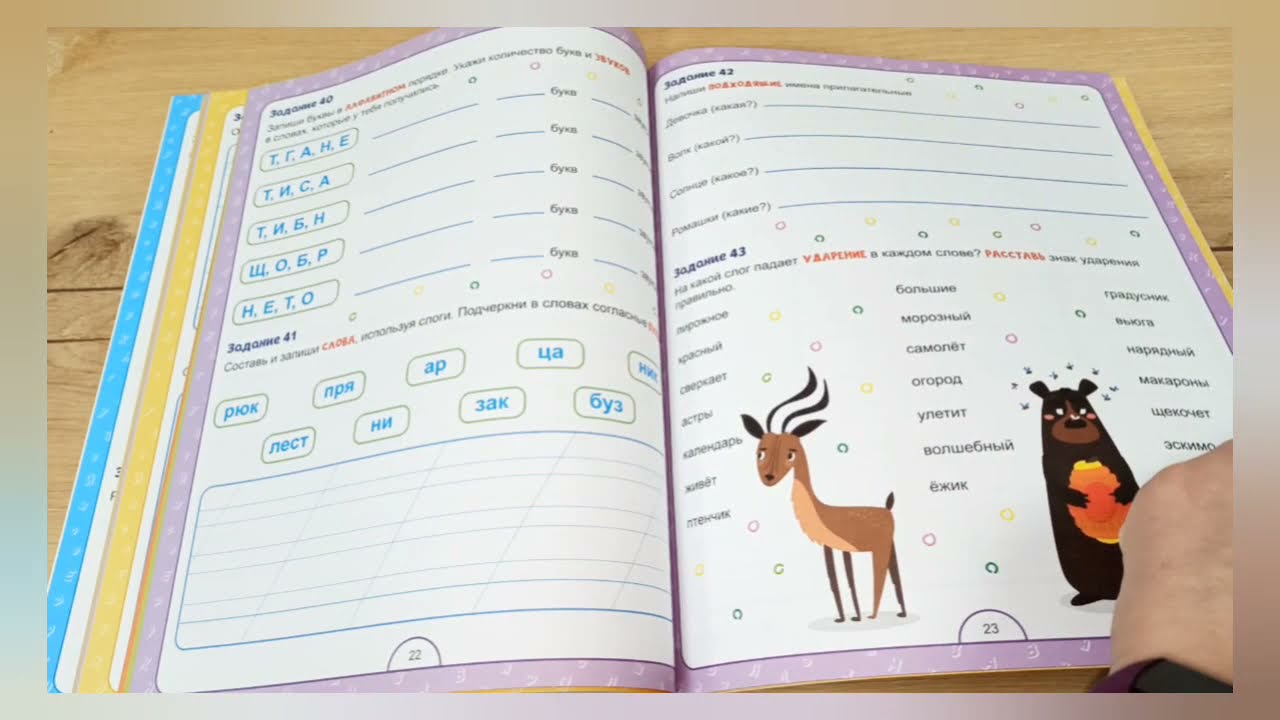 Задание 40
Запиши буквы в АЛФАВИТНОМ порядке. Укажи количество букв и ЗВУКОВ
в словах, которые у тебя получились.
Т, Г, А, Н, Е букв
Т, И, С, А букв
Т, И, Б, Н букв
Щ, О, Б, Р букв
Н, Е, Т, О букв
Задание 41
Составь и запиши СЛОВА, используя слоги. Подчеркни в словах согласные
рюк пря ар ца ник
лест ни зак буз
22
Задание 42
Напиши ПОДХОДЯЩИЕ имена прилагательные
Девочка (какая?)
Волк (какой?)
Солнце (какое?)
Ромашки (какие?)
Задание 43
На какой слог падает УДАРЕНИЕ в каждом слове? РАССТАВЬ знак ударения
правильно.
пирожное
красный
сверкает
астры
календарь
живёт
птенчик
большие
морозный
самолёт
огород
улетит
волшебный
ёжик
градусник
вьюга
нарядный
макароны
щекочет
эскимо
23